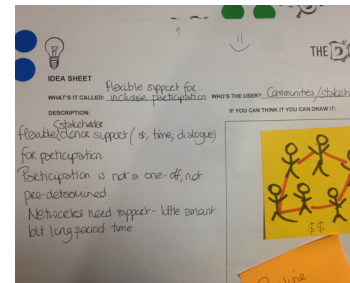 THE D
IDEA SHEET
WHAT'S IT CALLED: Flexible support for inclusive participation
WHO'S THE USER? Communities/stakeh
DESCRIPTION:
IF YOU CAN THINK IT YOU CAN DRAW IT:
Stakeholder
flexible donor support ($, time, dialogue)
for participation
Participation is not a one-off, not
pre-determined.
Networks need support - little amount
but long period time
$$